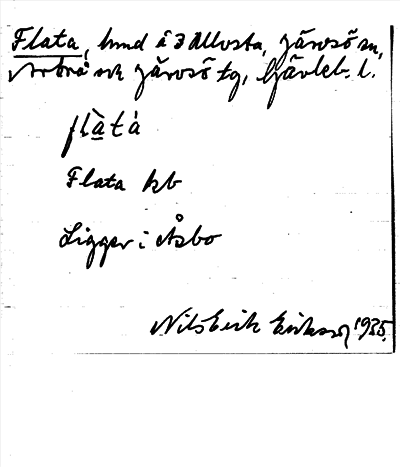 Flata, hmd å 3 Ullosta, Järvsö sn,
Arbrå ock Järvsö tg, Gävleb. l.
flàtá
Flata kb
Ligger i Åsbo
Nils Erik Eriksson 1935.